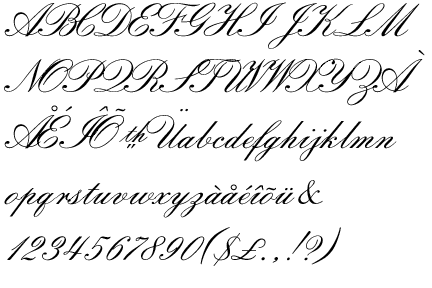 ABCDEFGHIJKLM
NOPQRSTUVWXYZÀ
ÅÉÎÕthÜabcdefghijklmn
opqrstuvwxyzàåéîõü&
1234567890($£.,!?)